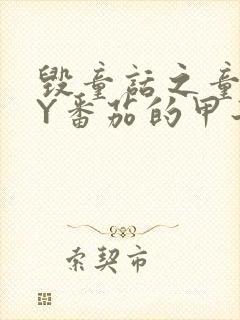 毁童话之童
Y番茄的甲
索契市